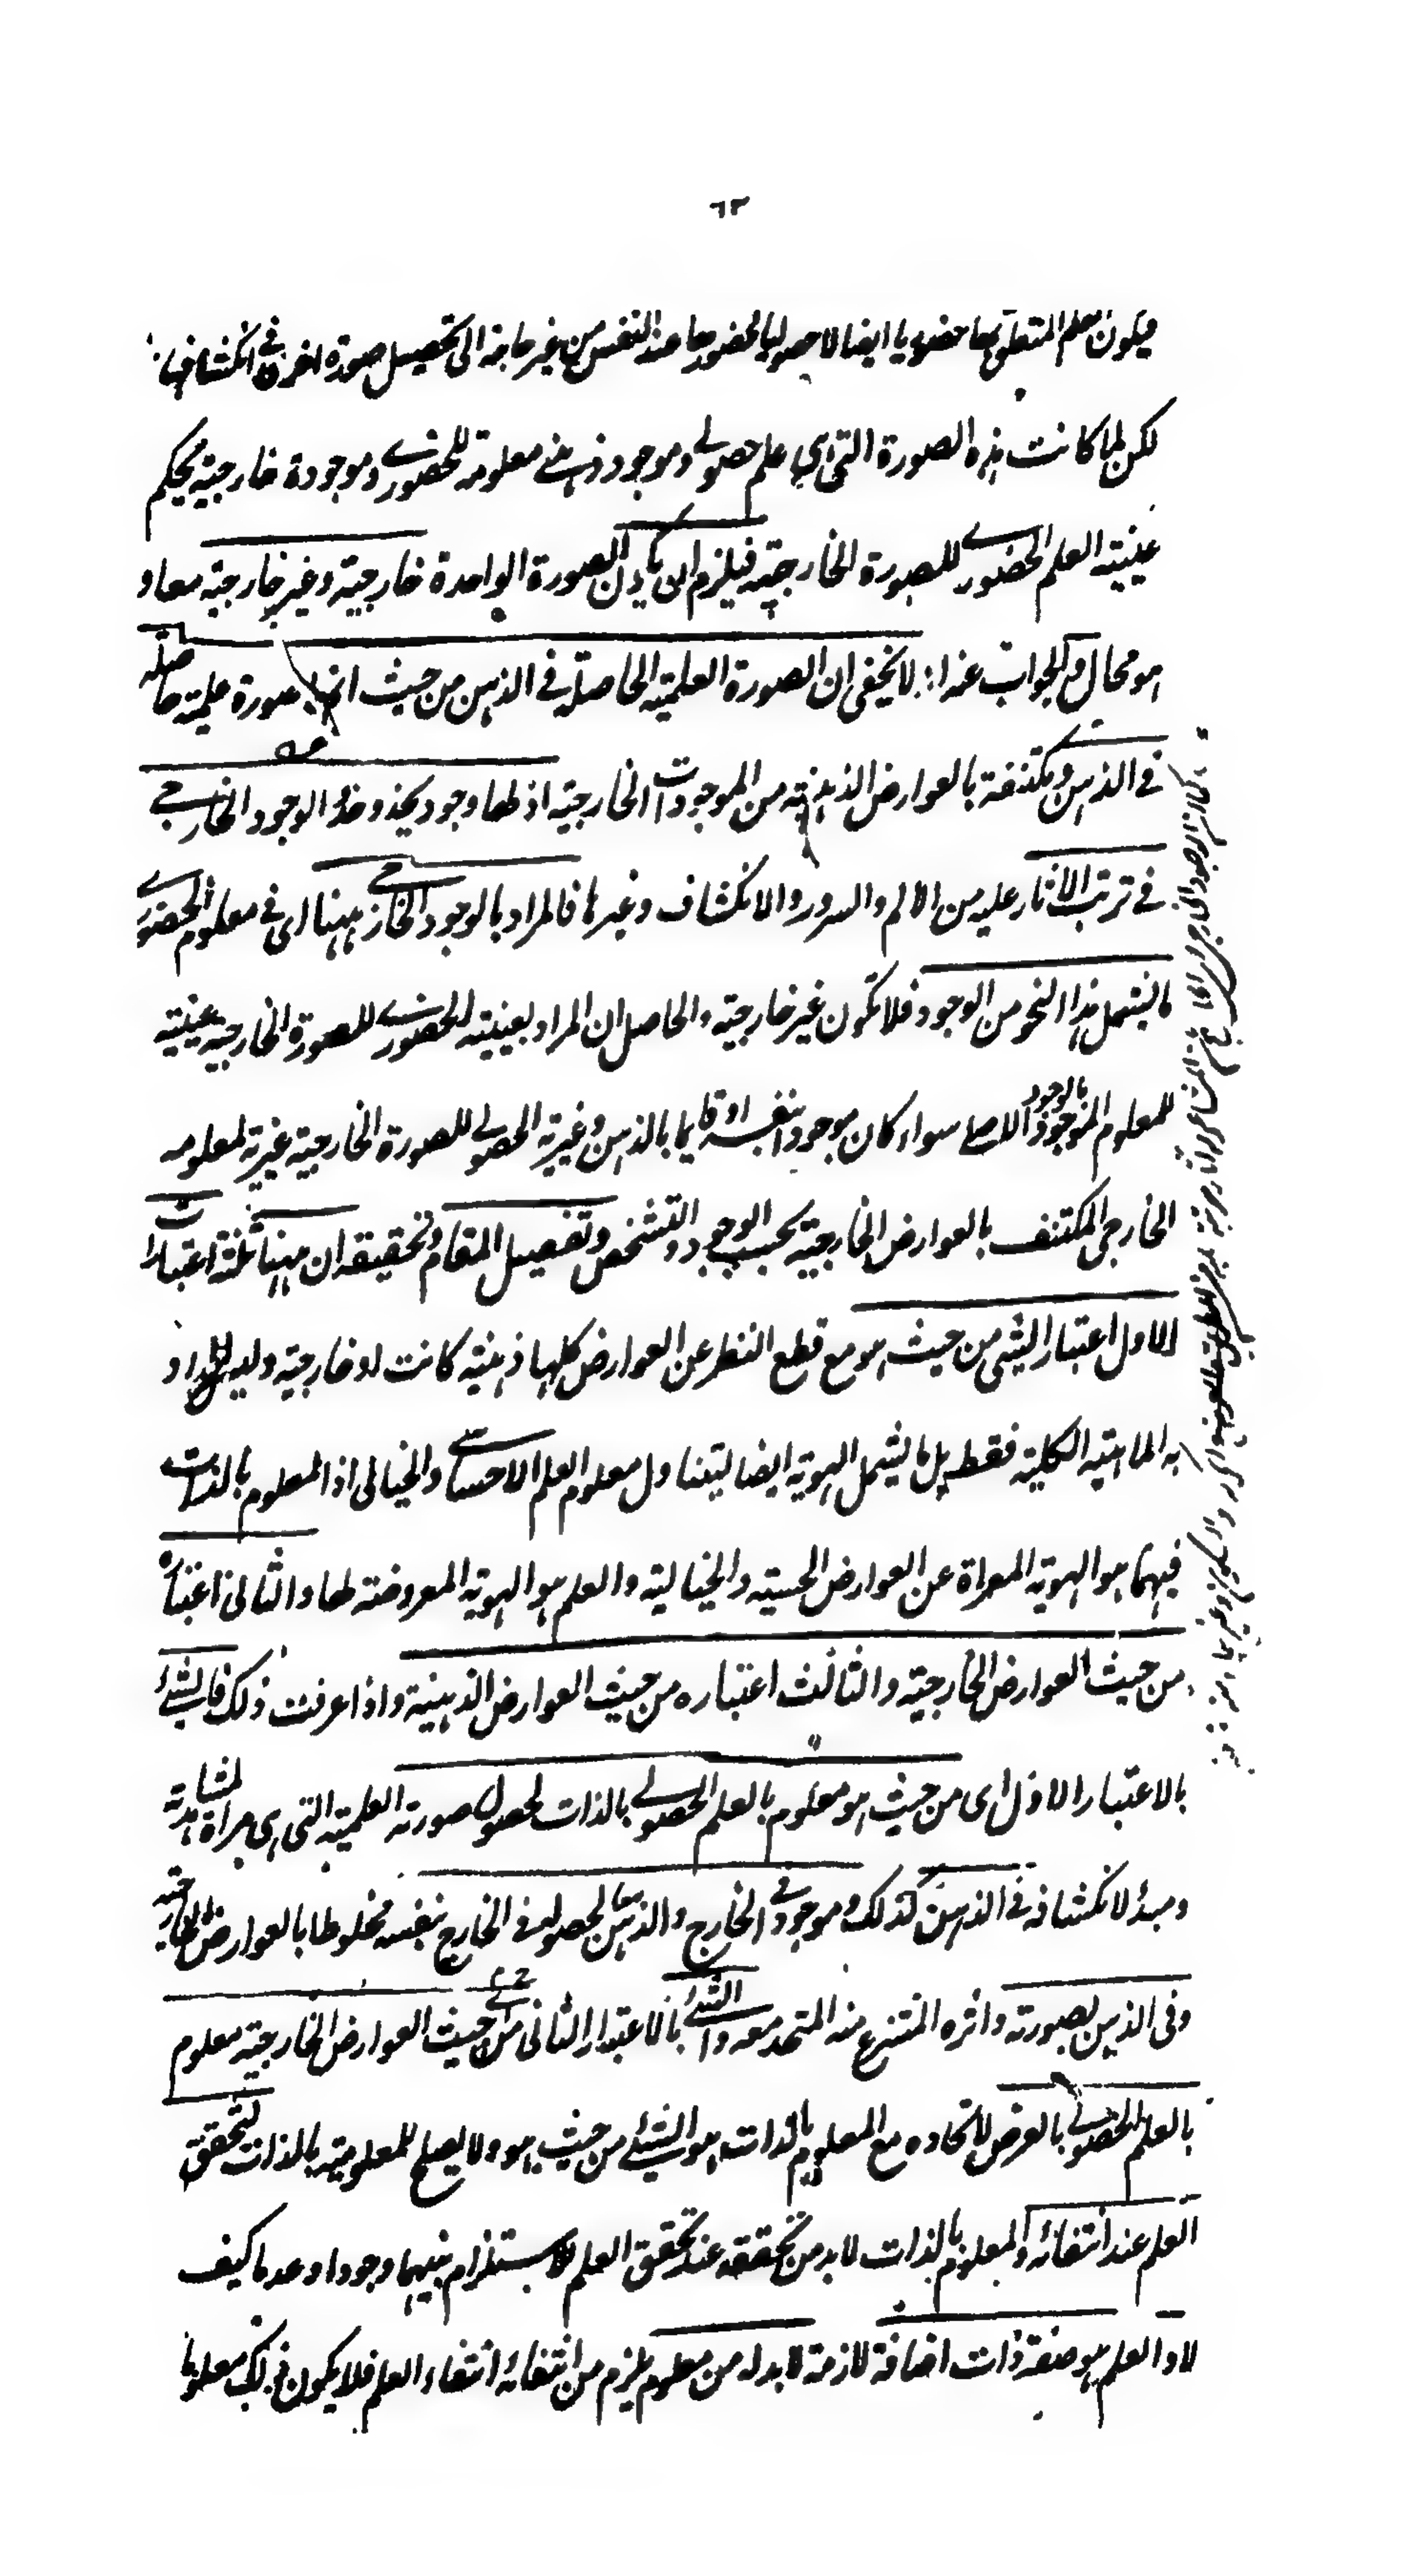 ٦٣
فيكون العلم المتعلق بها حضوريا ايضا لا حصوليا لحضورها عند النفس من غير حاجة الى تحصيل صورة اخرى فى انكشافها
لكن لما كانت هذه الصورة التى هى علم حصولى وموجود ذهنى معلومة للحضورى وموجودة خارجية بحكم
عينية العلم الحضورى للصورة الخارجية فيلزم ان يكون الصورة الواحدة خارجية وغير خارجية معا و
هو محال والجواب عنه انه لا يخفى ان الصورة العلمية الحاصلة فى الذهن من حيث انها صورة علمية حاصلة
فى الذهن ومكتنفة بالعوارض الذهنية من الموجودات الخارجية اذ لها وجود يحذو حذو الوجود الخارجى
فى ترتب الاثار عليه من الالم والسرور والانكشاف وغيرها فالمراد بالوجود الخارجى ههنا اى فى معلوم الحضورى
ما يشمل هذا النحو من الوجود فلا تكون غير خارجية والحاصل ان المراد بعينية الحضورى للصورة الخارجية عينيته
للمعلوم الموجود بالوجود الاصلى سواء كان موجودا بنفسه او قايما بالذهن وغيرية الحصولى للصورة الخارجية غيريته لمعلومه
الخارجى المكتنف بالعوارض الخارجية بحسب الوجود والتشخص وتفصيل المقام وتحقيقه ان ههنا ثلثة اعتبارات
الاول اعتبار الشئ من حيث هو مع قطع النظر عن العوارض كلها ذهنية كانت او خارجية وليس المراد
به الماهية الكلية فقط بل ما يشمل الهوية ايضا ليتناول معلوم العلم الاحساسى والخيالى اذ المعلوم بالذات
فيهما هو الهوية المعراة عن العوارض الحسية والخيالية والعلم هو الهوية المعروضة لها والثانى اعتباره
من حيث العوارض الخارجية والثالث اعتباره من حيث العوارض الذهنية واذا عرفت ذلك فالشئ
بالاعتبار الاول اى من حيث هو معلوم بالعلم الحصولى بالذات لحصول صورته العلمية التى هى مراة لمشاهدته
ومبدأ لانكشافه فى الذهن كذلك وموجود فى الخارج والذهن معا لحصوله فى الخارج بنفسه مخلوطا بالعوارض الخارجية
وفى الذهن بصورته واثره المتنزع منه المتحد معه والشئ بالاعتبار الثانى اى من حيث العوارض الخارجية معلوم
بالعلم الحصولى بالعرض لاتحاده مع المعلوم بالذات هو الشئ من حيث هو ولا يصلح للمعلومية بالذات لتحقق
العلم عند انتفائه والمعلوم بالذات لا بد من تحققه عند تحقق العلم لاستلزام بينهما وجودا وعدما كيف
لا والعلم هو صفة ذات اضافة لازمة لا بد له من معلوم يلزم من انتفائه انتفاء العلم فلا يكون ذلك معلوما